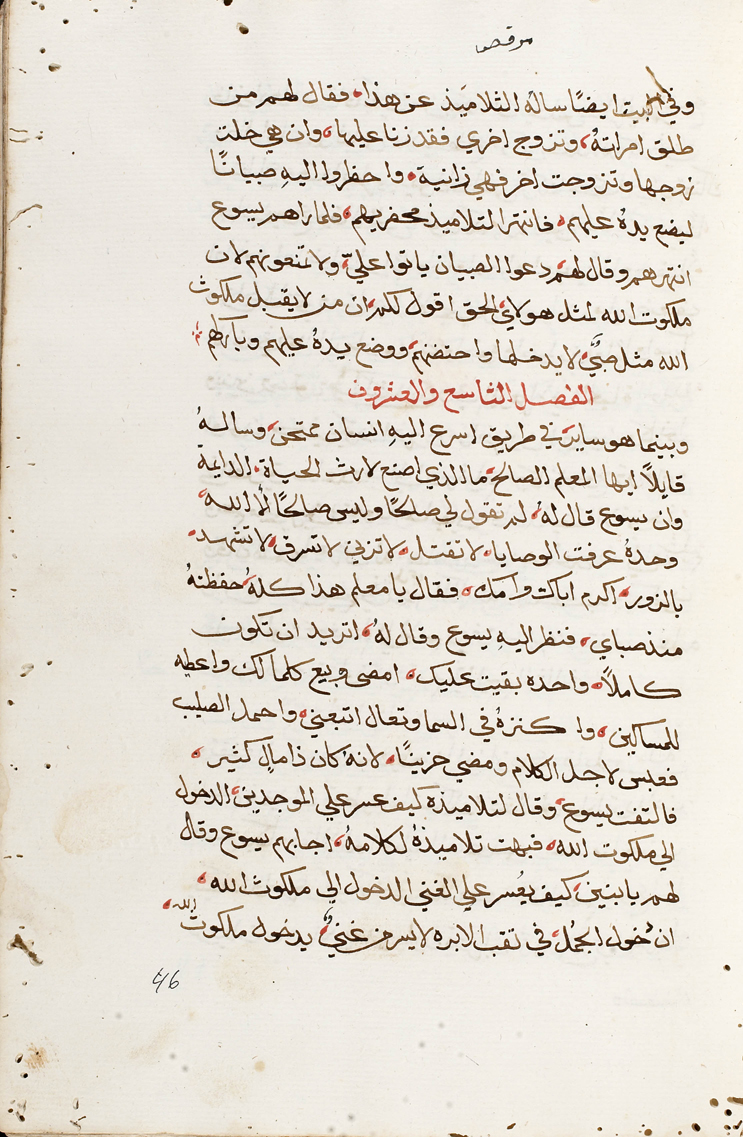 مرقص
وفي البيت ايضًا ساله التلاميذ عن هذا فقال لهم من
طلق امراتهُ وتزوج اخري فقد زنا عليها وان هي خلت
زوجها وتزوجت اخر فهي زانية واحظروا اليهِ صبيانًا
ليضع يدهُ عليهم فانتهر التلاميذ محضريهم فلما راهم يسوع
انتهرهم وقال لهم دعوا الصبيان ياتوا عليّ ولا تمنعونهم لان
ملكوت الله لمثل هولاي الحق اقول لكم ان من لا يقبل ملكوت
الله مثل صبيٌّ لا يدخلها واحتضنهم ووضع يدهُ عليهم وباركهم
الفصل التاسع والعشرون
وبينما هو ساير في طريق اسرع اليهِ انسان ممتحن وسالهُ
قايلاً ايها المعلم الصالح ما الذي اصنع لارث الحياة الدايمة
وان يسوع قال لهُ لم تقول لي صلحًا وليس صالحًا الا الله
وحدهُ عرفت الوصايا لا تقتل لا تزني لا تسرق لا تشهد
بالزور اكرم اباك وامك فقال يا معلم هذا كلهُ حفظتهُ
منذ صباي فنظر اليهِ يسوع وقال لهُ اتريد ان تكون
كاملاً واحده بقيت عليك امضى وبيع كلما لك واعطيه
للمساكين وا كنزهُ في السما وتعال اتبعني واحمل الصليب
فعبس لاجل الكلام ومضي حزينًا لانهُ كان ذا مالٍ كثير
فالتفت يسوع وقال لتلاميذه كيف عسر علي الموجدين الدخول
الي ملكوت الله فبهت تلاميذهُ لكلامهُ اجابهم يسوع وقال
لهم يا بنين كيف يعُسر علي الغني الدخول الي ملكوت الله
ان دخول الجمُل في تقب الابره لايسر من غنيٌّ يدخول ملكوت الله
46